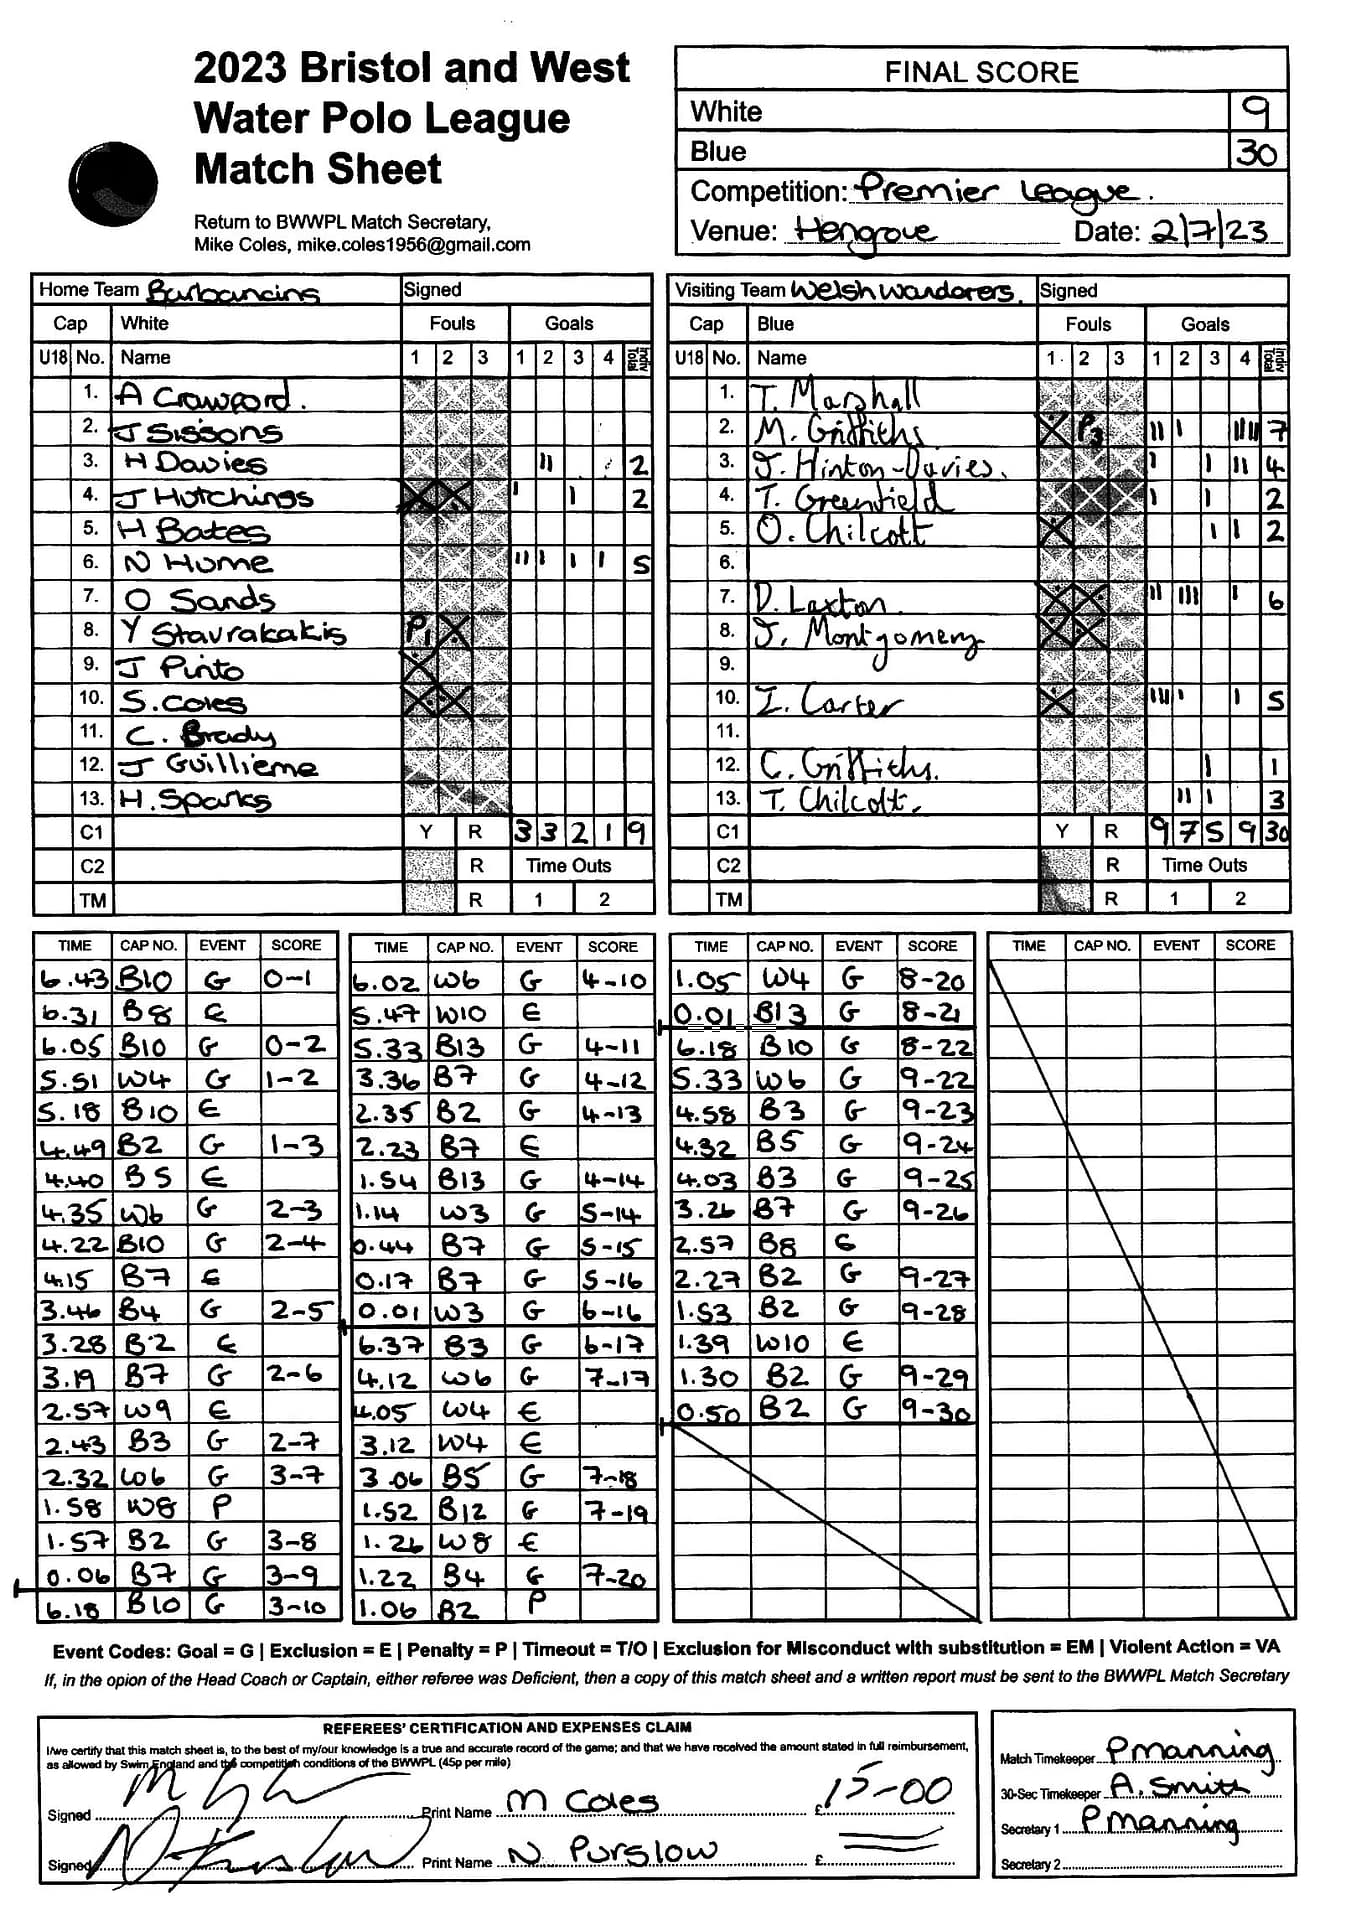 2023 Bristol and West
Water Polo League
Match Sheet
Return to BWWPL Match Secretary,
Mike Coles, mike.coles1956@gmail.com
FINAL SCORE
White 9
Blue 30
Competition: Premier League.
Venue: Hengrove Date: 2/7/23
Home Team Barbancins Signed
Cap White Fouls Goals
U18 No. Name 1 2 3 1 2 3 4 Indiv Total
1. A Crawford.
2. J Sissons
3. H Davies II 2
4. J Hutchings X X I I 2
5. H Bates
6. N Hume III I I I 5
7. O Sands
8. Y Stavrakakis P1 X
9. J Pinto X
10. S. Coles X X
11. C. Brady
12. J Guillieme
13. H. Sparks
C1 Y R 3 3 2 1 9
C2 R Time Outs
TM R 1 2
Visiting Team Welsh Wanderers. Signed
Cap Blue Fouls Goals
U18 No. Name 1 2 3 1 2 3 4 Indiv Total
1. T. Marshall
2. M. Griffiths X P3 II I IIII 7
3. J. Hinton-Davies. I I II 4
4. T. Greenfield I I 2
5. O. Chilcott X I I 2
6.
7. D. Laxton. X X II III I 6
8. J. Montgomery X X
9.
10. I. Carter X III I I 5
11.
12. C. Griffiths. I 1
13. T. Chilcott. II I 3
C1 Y R 9 7 5 9 30
C2 R Time Outs
TM R 1 2
TIME CAP NO. EVENT SCORE
6.43 B10 G 0-1
6.31 B8 E
6.05 B10 G 0-2
5.51 W4 G 1-2
5.18 B10 E
4.49 B2 G 1-3
4.40 B5 E
4.35 W6 G 2-3
4.22 B10 G 2-4
4.15 B7 E
3.46 B4 G 2-5
3.28 B2 E
3.19 B7 G 2-6
2.57 W9 E
2.43 B3 G 2-7
2.32 W6 G 3-7
1.58 W8 P
1.57 B2 G 3-8
0.06 B7 G 3-9
6.18 B10 G 3-10
TIME CAP NO. EVENT SCORE
6.02 W6 G 4-10
5.47 W10 E
5.33 B13 G 4-11
3.36 B7 G 4-12
2.35 B2 G 4-13
2.23 B7 E
1.54 B13 G 4-14
1.14 W3 G 5-14
0.44 B7 G 5-15
0.17 B7 G 5-16
0.01 W3 G 6-16
6.37 B3 G 6-17
4.12 W6 G 7-17
4.05 W4 E
3.12 W4 E
3.06 B5 G 7-18
1.52 B12 G 7-19
1.26 W8 E
1.22 B4 G 7-20
1.06 B2 P
TIME CAP NO. EVENT SCORE
1.05 W4 G 8-20
0.01 B13 G 8-21
6.18 B10 G 8-22
5.33 W6 G 9-22
4.58 B3 G 9-23
4.32 B5 G 9-24
4.03 B3 G 9-25
3.26 B7 G 9-26
2.57 B8 E
2.27 B2 G 9-27
1.53 B2 G 9-28
1.39 W10 E
1.30 B2 G 9-29
0.50 B2 G 9-30
TIME CAP NO. EVENT SCORE
Event Codes: Goal = G | Exclusion = E | Penalty = P | Timeout = T/O | Exclusion for Misconduct with substitution = EM | Violent Action = VA
If, in the opion of the Head Coach or Captain, either referee was Deficient, then a copy of this match sheet and a written report must be sent to the BWWPL Match Secretary
REFEREES' CERTIFICATION AND EXPENSES CLAIM
I/we certify that this match sheet is, to the best of my/our knowledge is a true and accurate record of the game; and that we have received the amount stated in full reimbursement,
as allowed by Swim England and the competition conditions of the BWWPL (45p per mile)
Signed Print Name M Coles £15-00
Signed Print Name N Purslow £
Match Timekeeper P Manning
30-Sec Timekeeper A. Smith
Secretary 1 P Manning
Secretary 2